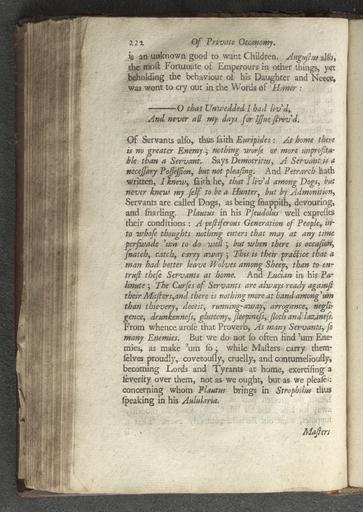 222 Of Private Oeconomy.
is an unknown good to want Children. Augustus also,
the most Fortunate of Emperours in other things, yet
beholding the behaviour of his Daughter and Neece,
was wont to cry out in the Words of Homer :
——O that Unwedded I had liv'd,
And never all my days for Issue striv'd.
Of Servants also, thus saith Euripides: At home there
is no greater Enemy; nothing worse or more improfita-
ble than a Servant. Says Democritus, A Servant is a
necessary Possession, but not pleasing. And Petrarch hath
written, I knew, saith he, that I liv'd among Dogs, but
never knew my self to be a Hunter, but by Admonition,
Servants are called Dogs, as being snappish, devouring,
and snarling. Plautus in his Pseudolus well expresses
their conditions : A pestiferous Generation of People, in-
to whose thoughts nothing enters that may at any time
perswade 'um to do well; but when there is occasion,
snatch, catch, carry away; This is their practice that a
man had better leave Wolves among Sheep, than to en-
trust these Servants at home. And Lucian in his Pa-
linure; The Curses of Servants are always ready against
their Masters, and there is nothing more at hand among 'um
than thievery, deceit, running-away, arrogance, negli-
gence, drunkenness, gluttony, sleepiness, sloth and laziness.
From whence arose that Proverb, As many Servants, so
many Enemies. But we do not so often find 'um Ene-
mies, as make 'um so; while Masters carry them-
selves proudly, covetously, cruelly, and contumeliously,
becoming Lords and Tyrants at home, exercising a
severity over them, not as we ought, but as we please:
concerning whom Plautus brings in Strophilus thus
speaking in his Aulularia.
Masters